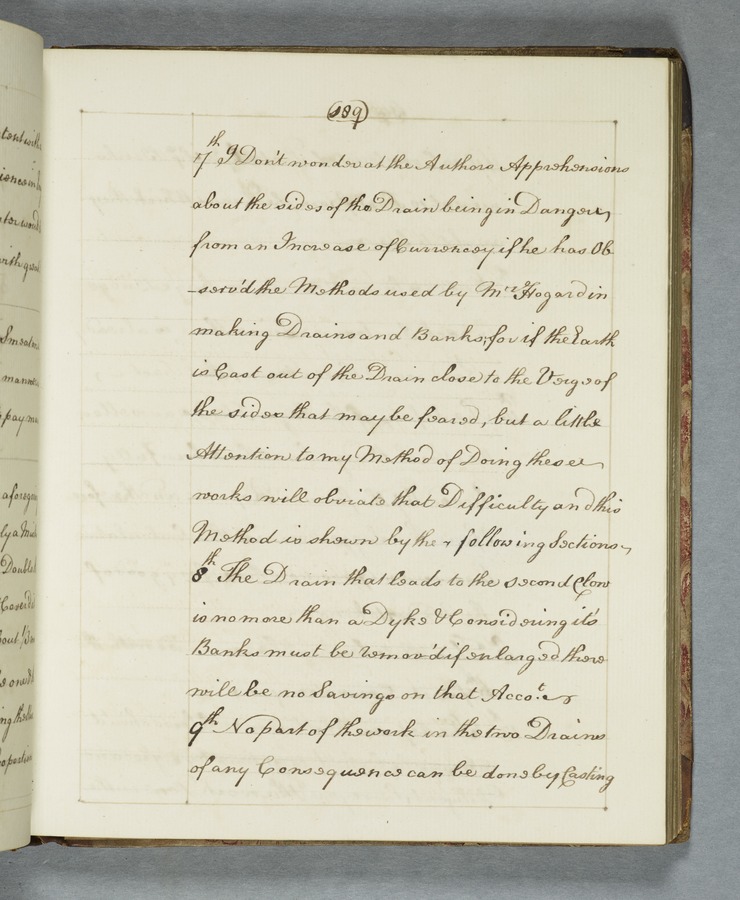 189
7th I Don't wonder at the Authors Apprehensions
about the sides of the Drain being in Danger
from an Increase of Currencey if he has Ob
-serv'd the Methods used by Mrs Hogard in
making Drains and Banks; for if the Earth
is Cast out of the Drain close to the Verge of
the sides that may be feared, but a little
Attention to my Method of Doing these
works will obviate that Difficulty and this
Method is shewn by the following Sections
8th The Drain that leads to the second Clow
is no more than a Dyke & Considering it's
Banks must be remov'd if enlarged there
will be no Savings on that Accot.
9th No part of the work in the two Drains
of any Consequence can be done by Casting